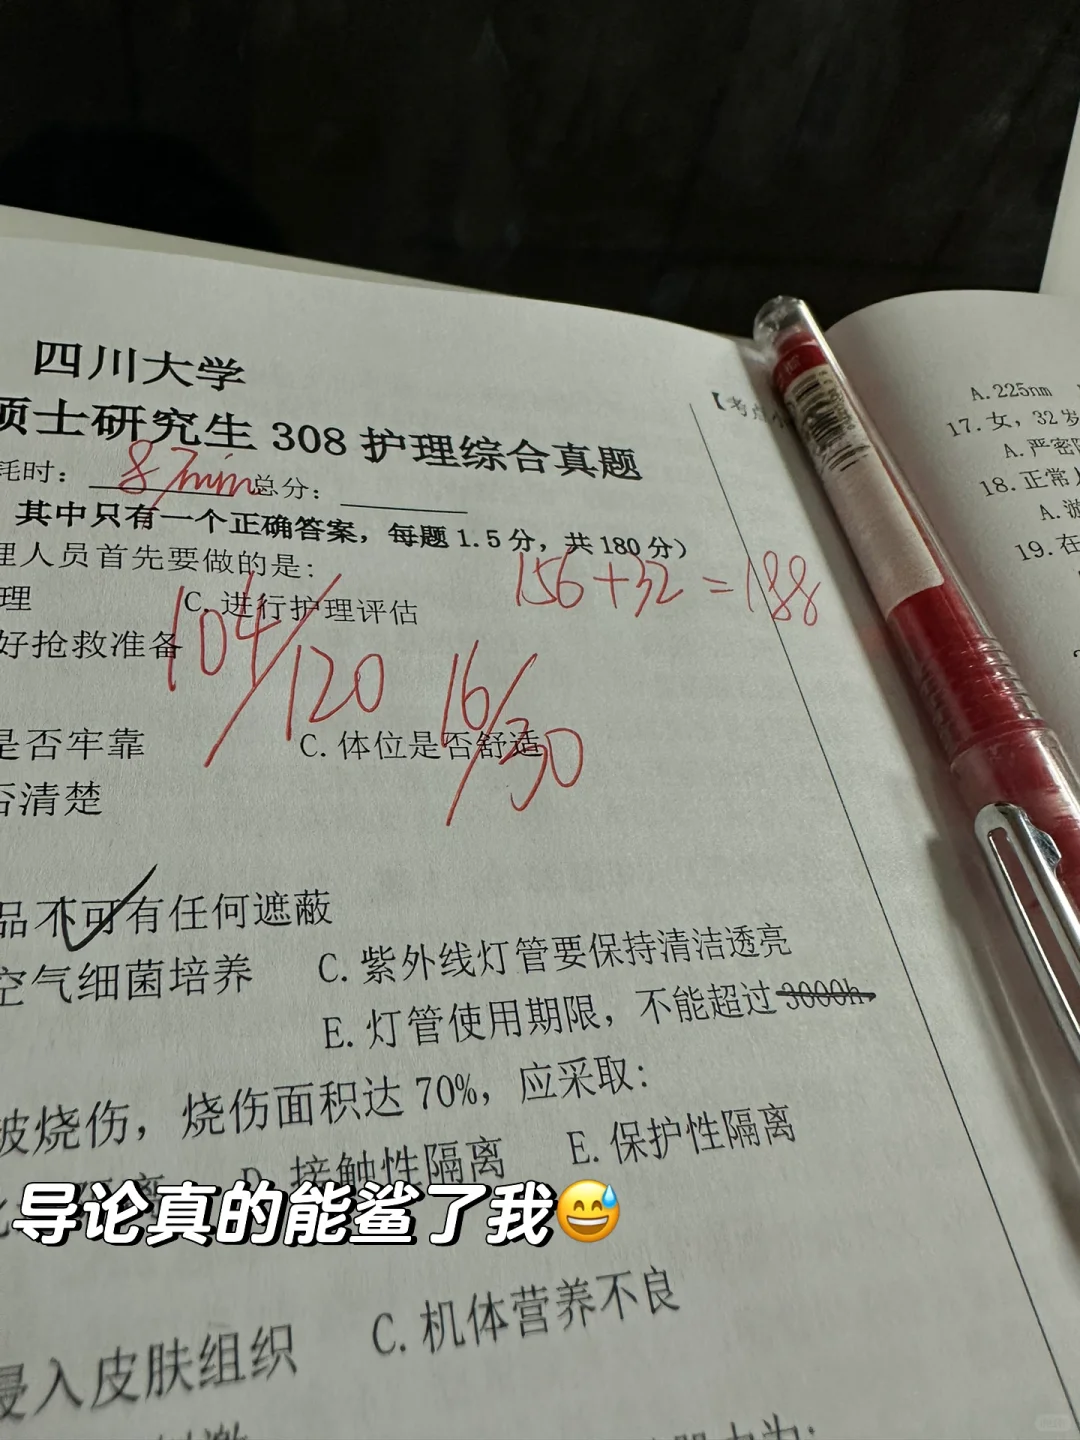 四川大学
硕士研究生 308 护理综合真题
耗时: 87min 总分:
其中只有一个正确答案，每题 1.5 分，共 180 分）
理人员首先要做的是:
理 C. 进行护理评估
156+32=188
好抢救准备
104/120 16/30
是否牢靠 C. 体位是否舒适
否清楚
品不可有任何遮蔽
空气细菌培养 C. 紫外线灯管要保持清洁透亮
E. 灯管使用期限，不能超过 3000h
被烧伤，烧伤面积达 70%，应采取:
D. 接触性隔离 E. 保护性隔离
导论真的能鲨了我😅
侵入皮肤组织 C. 机体营养不良
【考点
A. 225nm
17. 女，32 岁
A. 严密
18. 正常
A. 游
19. 在